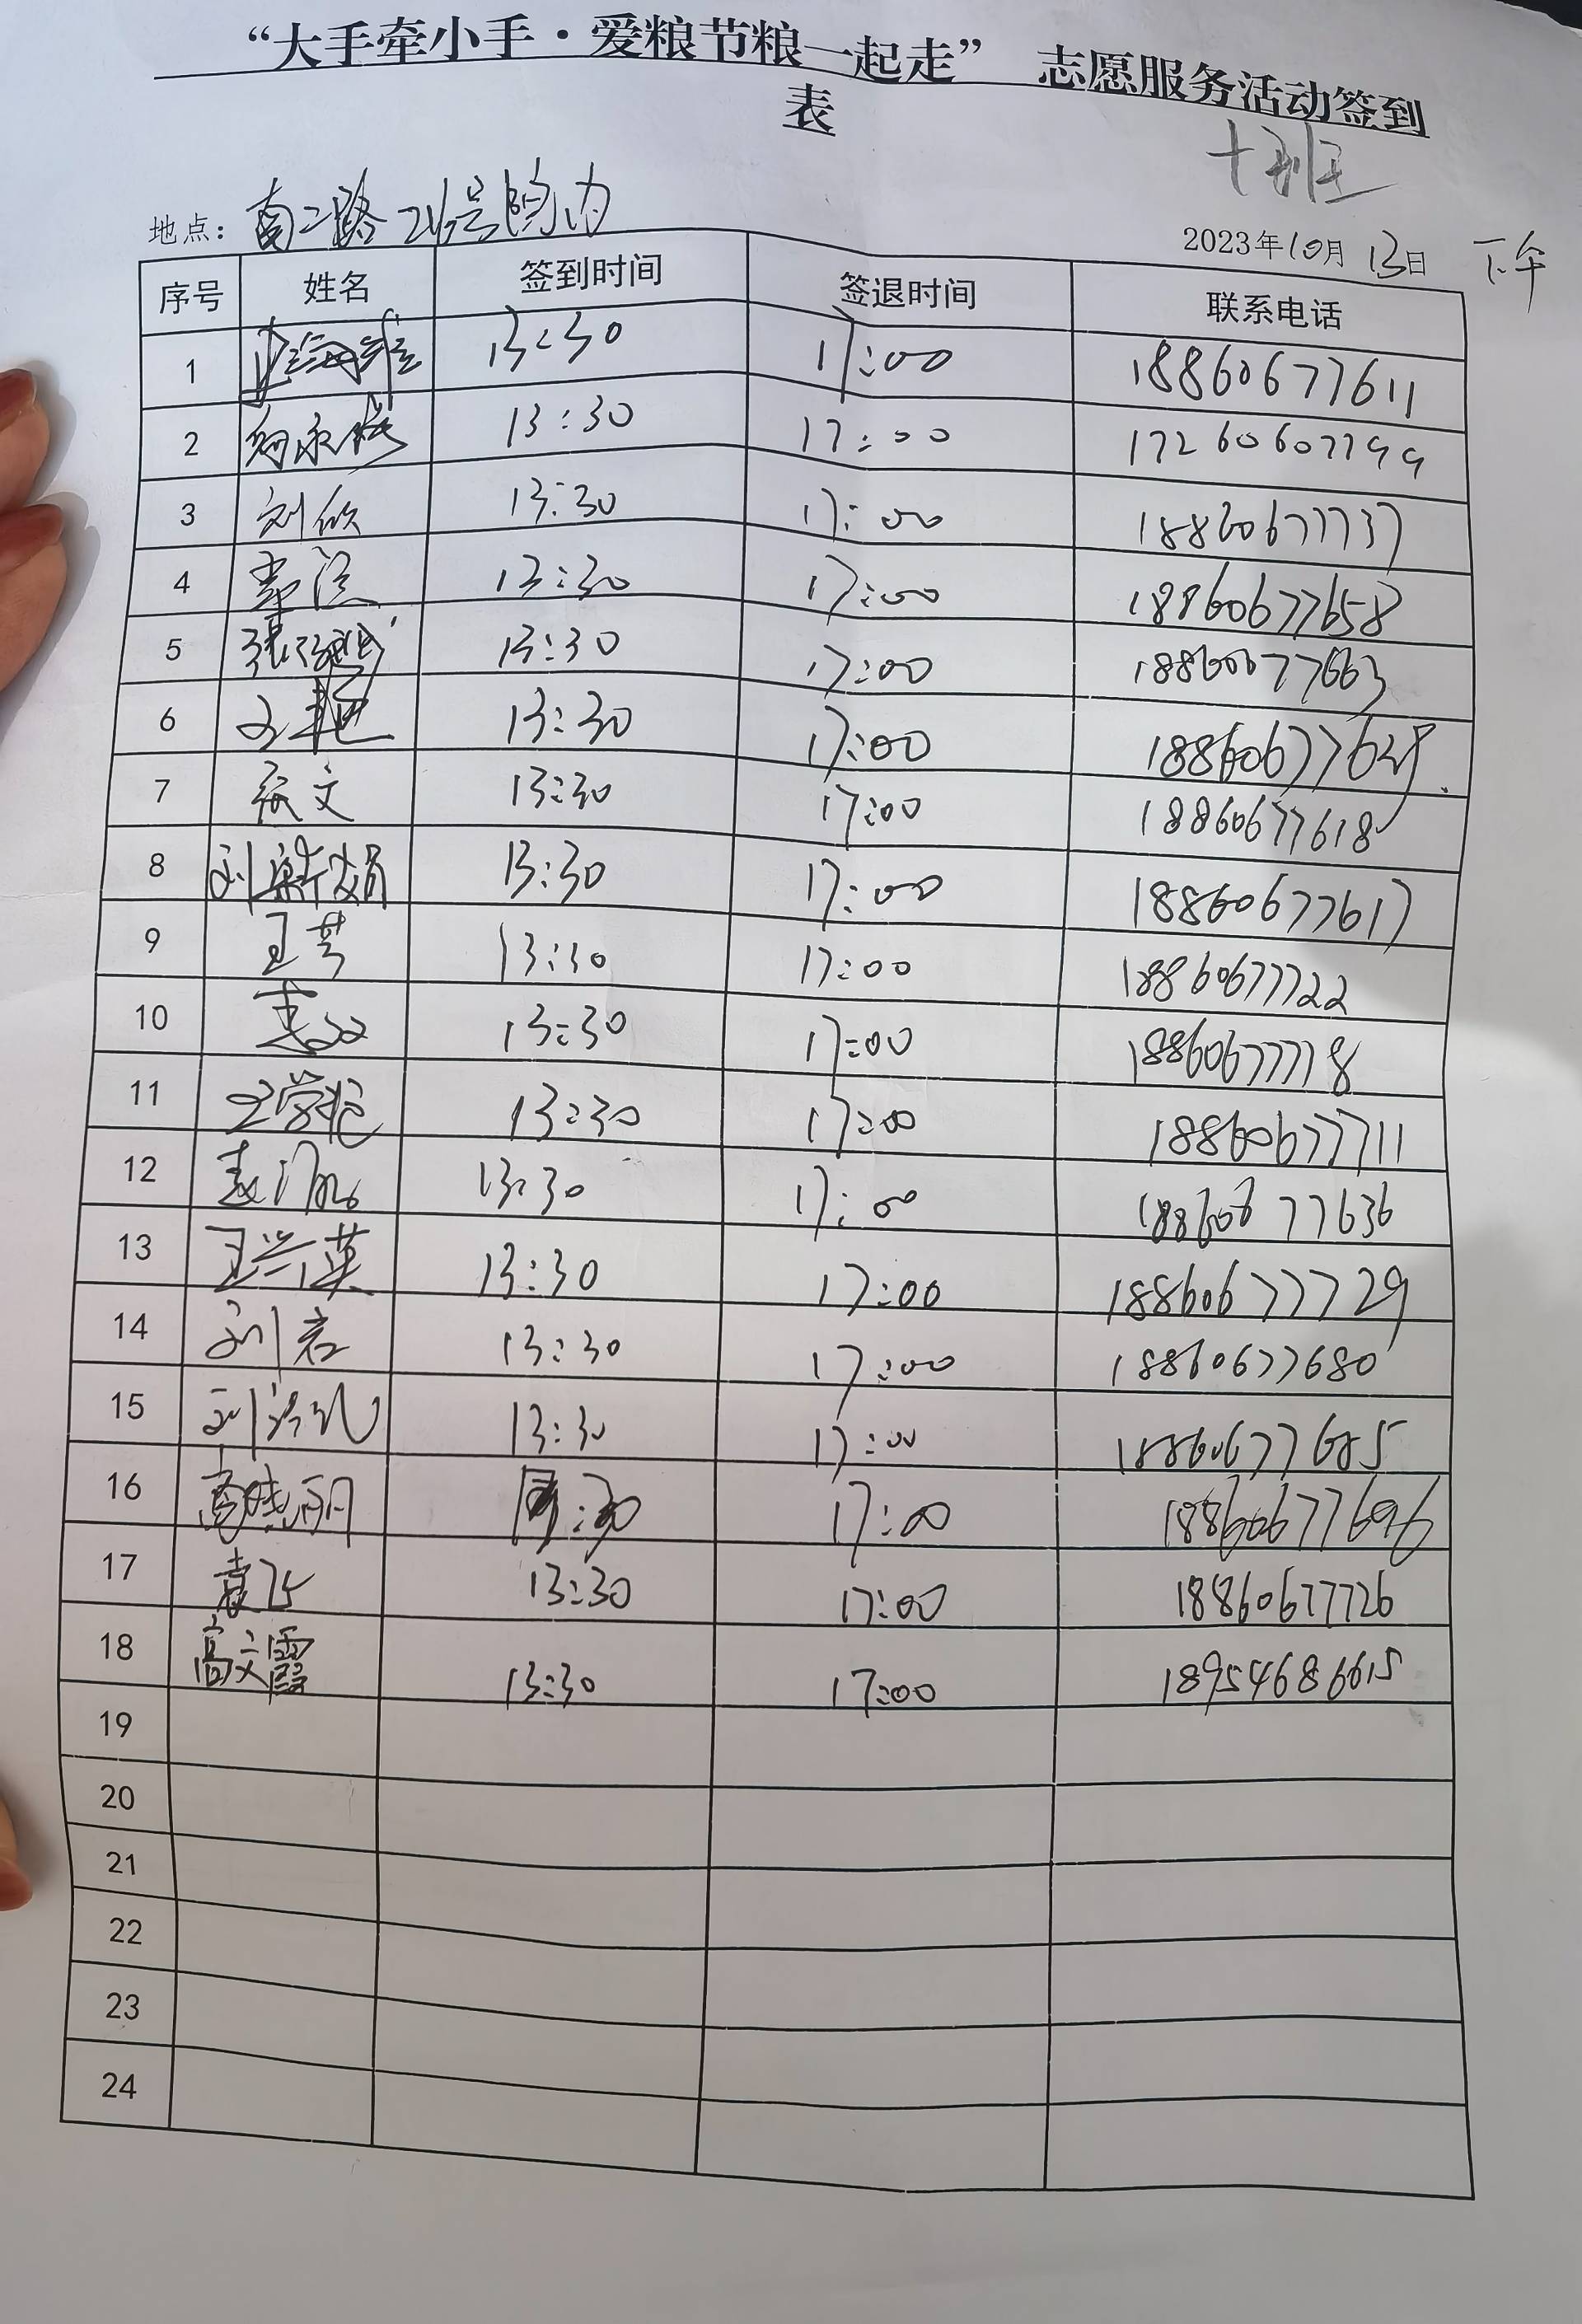 “大手牵小手·爱粮节粮一起走” 志愿服务活动签到
表
十班
地点：南二路 号院内
2023年10月13日 下午
序号 姓名 签到时间 签退时间 联系电话
1 13:30 17:00 18860677611
2 13:30 17:00 17260607799
3 刘欣 13:30 17:00 18860677737
4 13:30 17:00 18860677658
5 13:30 17:00 18860677663
6 13:30 17:00
7 张文 13:30 17:00 18860677618
8 刘 娟 13:30 17:00 18860677617
9 王芳 13:30 17:00 18860677722
10 13:30 17:00 18860677718
11 13:30 17:00 18860677711
12 13:30 17:00 18860677636
13 王兴英 13:30 17:00 18860677729
14 刘君 13:30 17:00 18860677680
15 刘 13:30 17:00 18860677685
16 高晓丽 :30 17:00 18860677696
17 袁飞 13:30 17:00 18860677726
18 高文霞 13:30 17:00 18954686615
19
20
21
22
23
24